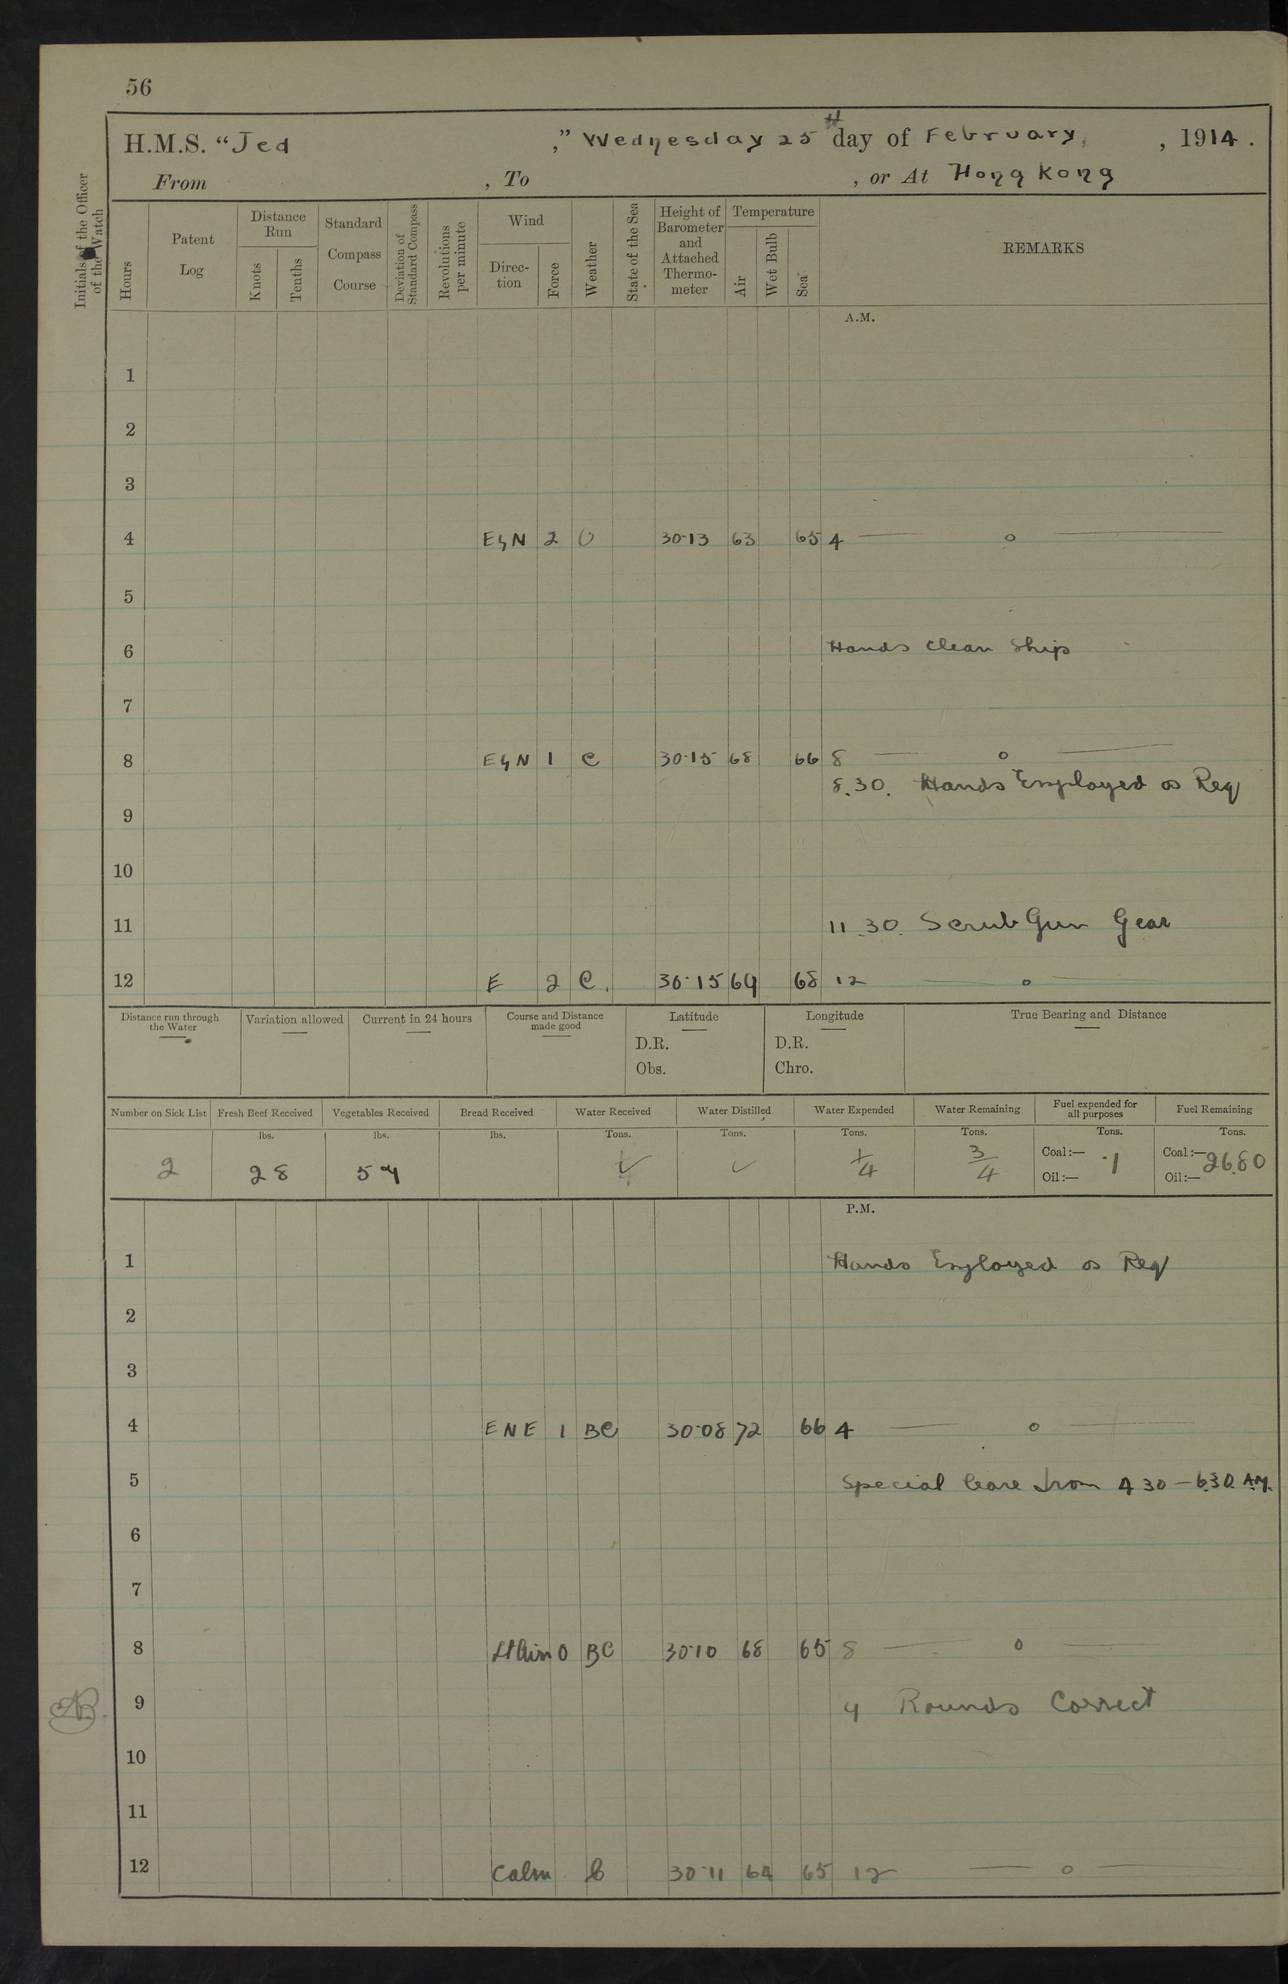 56
H.M.S. "Jed ," Wednesday 25th day of February, , 1914.
From , To , or At Hong Kong
Initials of the Officer of the Watch
Hours
Patent Log
Distance Run
Knots
Tenths
Standard Compass Course
Deviation of Standard Compass
Revolutions per minute
Wind
Direc-tion
Force
Weather
State of the Sea
Height of Barometer and Attached Thermo-meter
Temperature
Air
Wet Bulb
Sea
REMARKS
A.M.
1
2
3
4 EbyN 2 O 30·13 63 65 4 — o —
5
6 Hands clean Ship
7
8 EbyN 1 C 30·15 68 66 8 — o —
8.30. Hands Employed as Req
9
10
11 11.30. Scrub Gun Gear
12 E 2 C. 30·15 69 68 12 — o —
Distance run through the Water
Variation allowed
Current in 24 hours
Course and Distance made good
Latitude
D.R.
Obs.
Longitude
D.R.
Chro.
True Bearing and Distance
Number on Sick List Fresh Beef Received Vegetables Received Bread Received Water Received Water Distilled Water Expended Water Remaining Fuel expended for all purposes Fuel Remaining
lbs. lbs. lbs. Tons. Tons. Tons. Tons. Tons. Tons.
2 28 ✓ 1/4 3/4 Coal:— ·1 Coal:— 26.80
Oil:— Oil:—
P.M.
1 Hands Employed as Req
2
3
4 ENE 1 BC 30·08 72 66 4 — o —
5 Special leave from 4 30 — 6.30. A.M.
6
7
8 Lt Airs 0 BC 30·10 68 65 8 — o —
9 9 Rounds Correct
10
11
12 Calm b 30·11 64 65 12 — o —